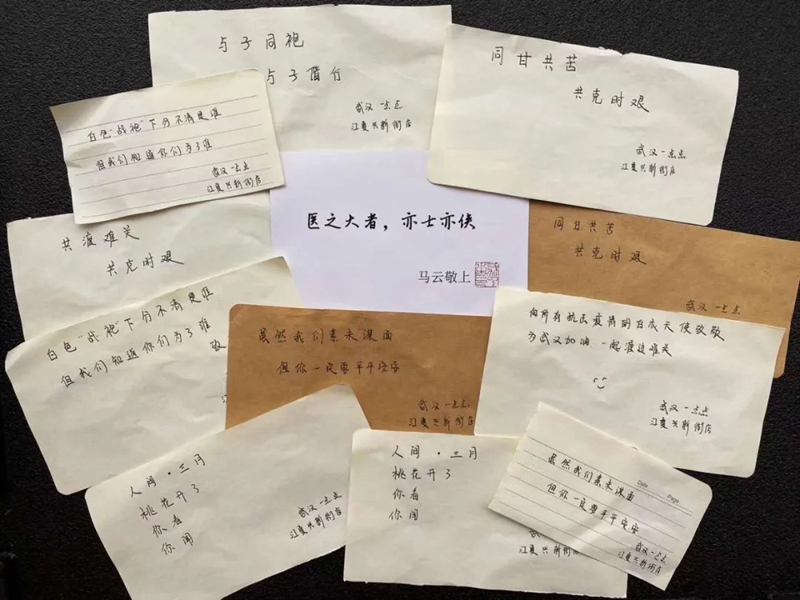 与子同袍
与子偕行
武汉一点点
江夏兴新街店
同甘共苦
共克时艰
武汉一点点
江夏兴新街店
白色“战袍”下分不清是谁
但我们知道你们为了谁
武汉一点点
江夏兴新街店
医之大者，亦士亦侠
马云敬上
共渡难关
共克时艰
同甘共苦
共克时艰
武汉一点点
白色“战袍”下分不清是谁
但我们知道你们为了谁
致
虽然我们素未谋面
但你一定要平平安安
武汉一点点
江夏兴新街店
向所有抗击疫情的白衣天使致敬
为武汉加油 一起度过难关
武汉一点点
江夏兴新街店
人间·三月
桃花开了
你看
你闻
武汉一点点
江夏兴新街店
人间·三月
桃花开了
你看
你闻
武汉一点点
江夏兴新街店
Date Page
虽然我们素未谋面
但你一定要平平安安
武汉一点点
江夏兴新街店